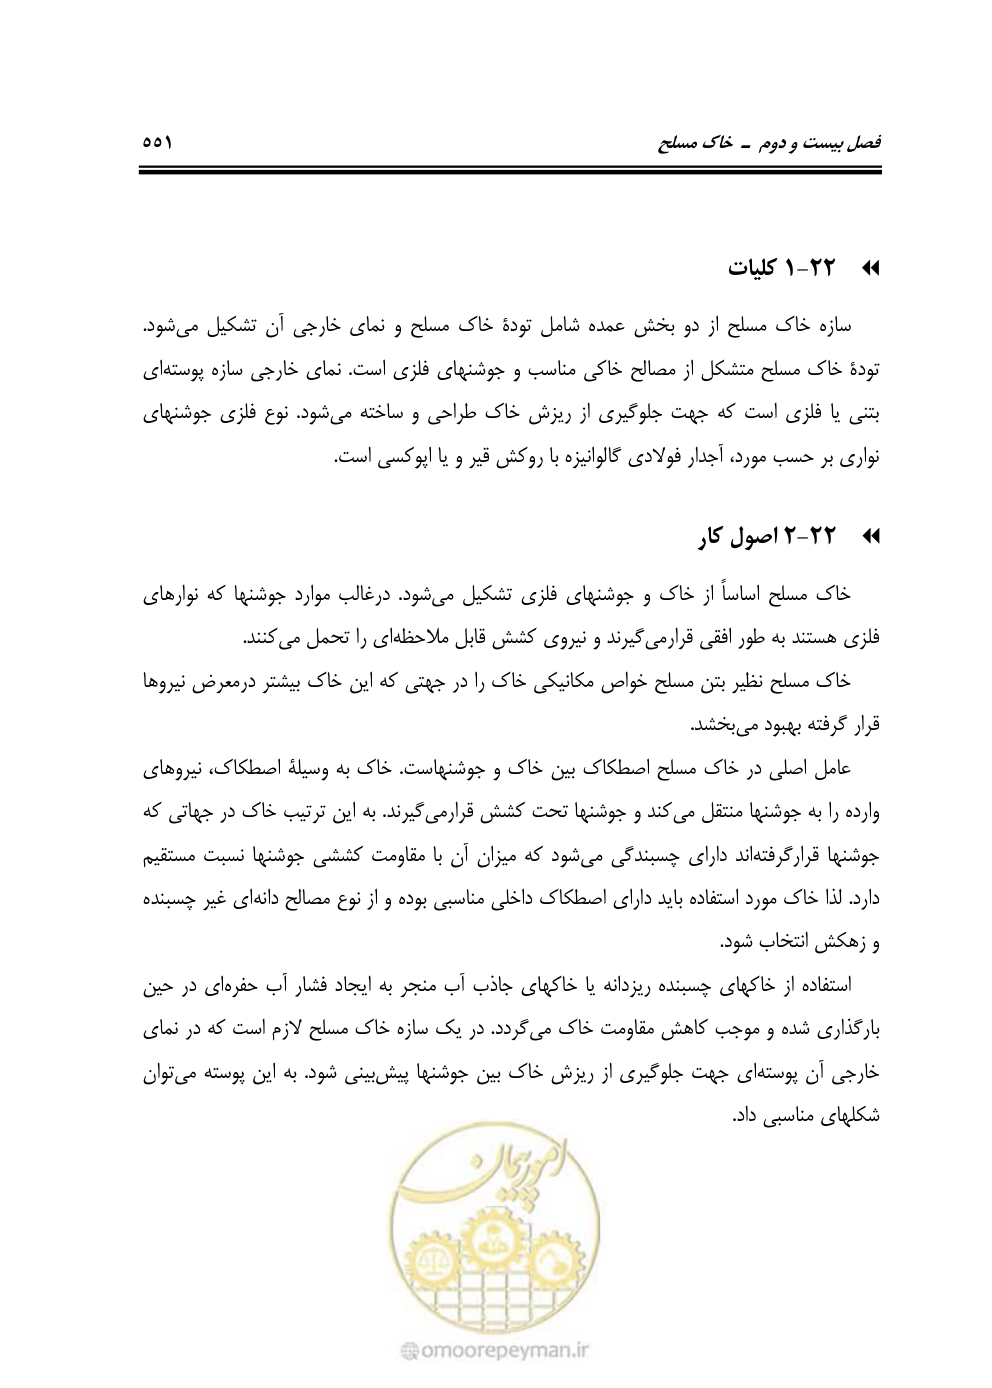 فصل بیست و دوم - خاک مسلح ۵۵۱
۲۲-۱ کلیات
سازه خاک مسلح از دو بخش عمده شامل تودۀ خاک مسلح و نمای خارجی آن تشکیل می‌شود.
تودۀ خاک مسلح متشکل از مصالح خاکی مناسب و جوشنهای فلزی است. نمای خارجی سازه پوسته‌ای
بتنی یا فلزی است که جهت جلوگیری از ریزش خاک طراحی و ساخته می‌شود. نوع فلزی جوشنهای
نواری بر حسب مورد، آجدار فولادی گالوانیزه با روکش قیر و یا اپوکسی است.
۲۲-۲ اصول کار
خاک مسلح اساساً از خاک و جوشنهای فلزی تشکیل می‌شود. درغالب موارد جوشنها که نوارهای
فلزی هستند به طور افقی قرارمی‌گیرند و نیروی کشش قابل ملاحظه‌ای را تحمل می‌کنند.
خاک مسلح نظیر بتن مسلح خواص مکانیکی خاک را در جهتی که این خاک بیشتر درمعرض نیروها
قرار گرفته بهبود می‌بخشد.
عامل اصلی در خاک مسلح اصطکاک بین خاک و جوشنهاست. خاک به وسیلۀ اصطکاک، نیروهای
وارده را به جوشنها منتقل می‌کند و جوشنها تحت کشش قرارمی‌گیرند. به این ترتیب خاک در جهاتی که
جوشنها قرارگرفته‌اند دارای چسبندگی می‌شود که میزان آن با مقاومت کششی جوشنها نسبت مستقیم
دارد. لذا خاک مورد استفاده باید دارای اصطکاک داخلی مناسبی بوده و از نوع مصالح دانه‌ای غیر چسبنده
و زهکش انتخاب شود.
استفاده از خاکهای چسبنده ریزدانه یا خاکهای جاذب آب منجر به ایجاد فشار آب حفره‌ای در حین
بارگذاری شده و موجب کاهش مقاومت خاک می‌گردد. در یک سازه خاک مسلح لازم است که در نمای
خارجی آن پوسته‌ای جهت جلوگیری از ریزش خاک بین جوشنها پیش‌بینی شود. به این پوسته می‌توان
شکلهای مناسبی داد.
امور پیمان
@omoorepeyman.ir